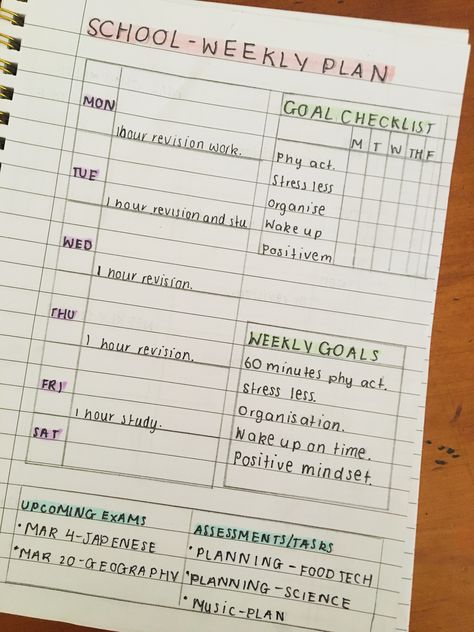 SCHOOL-WEEKLY PLAN
MON
1hour revision work.
TUE
1 hour revision and stu
WED
1 hour revision.
THU
1 hour revision.
FRI
1 hour study.
SAT
GOAL CHECKLIST
M T W TH F
Phy act.
Stress less
Organise
Wake up
Positivem
WEEKLY GOALS
60 minutes phy act.
Stress less.
Organisation.
Wake up on time.
Positive mindset.
UPCOMING EXAMS
• MAR 4-JAPENESE
• MAR 20-GEOGRAPHY
ASSESSMENTS/TASKS
• PLANNING - FOOD TECH
• PLANNING-SCIENCE
• MUSIC-PLAN